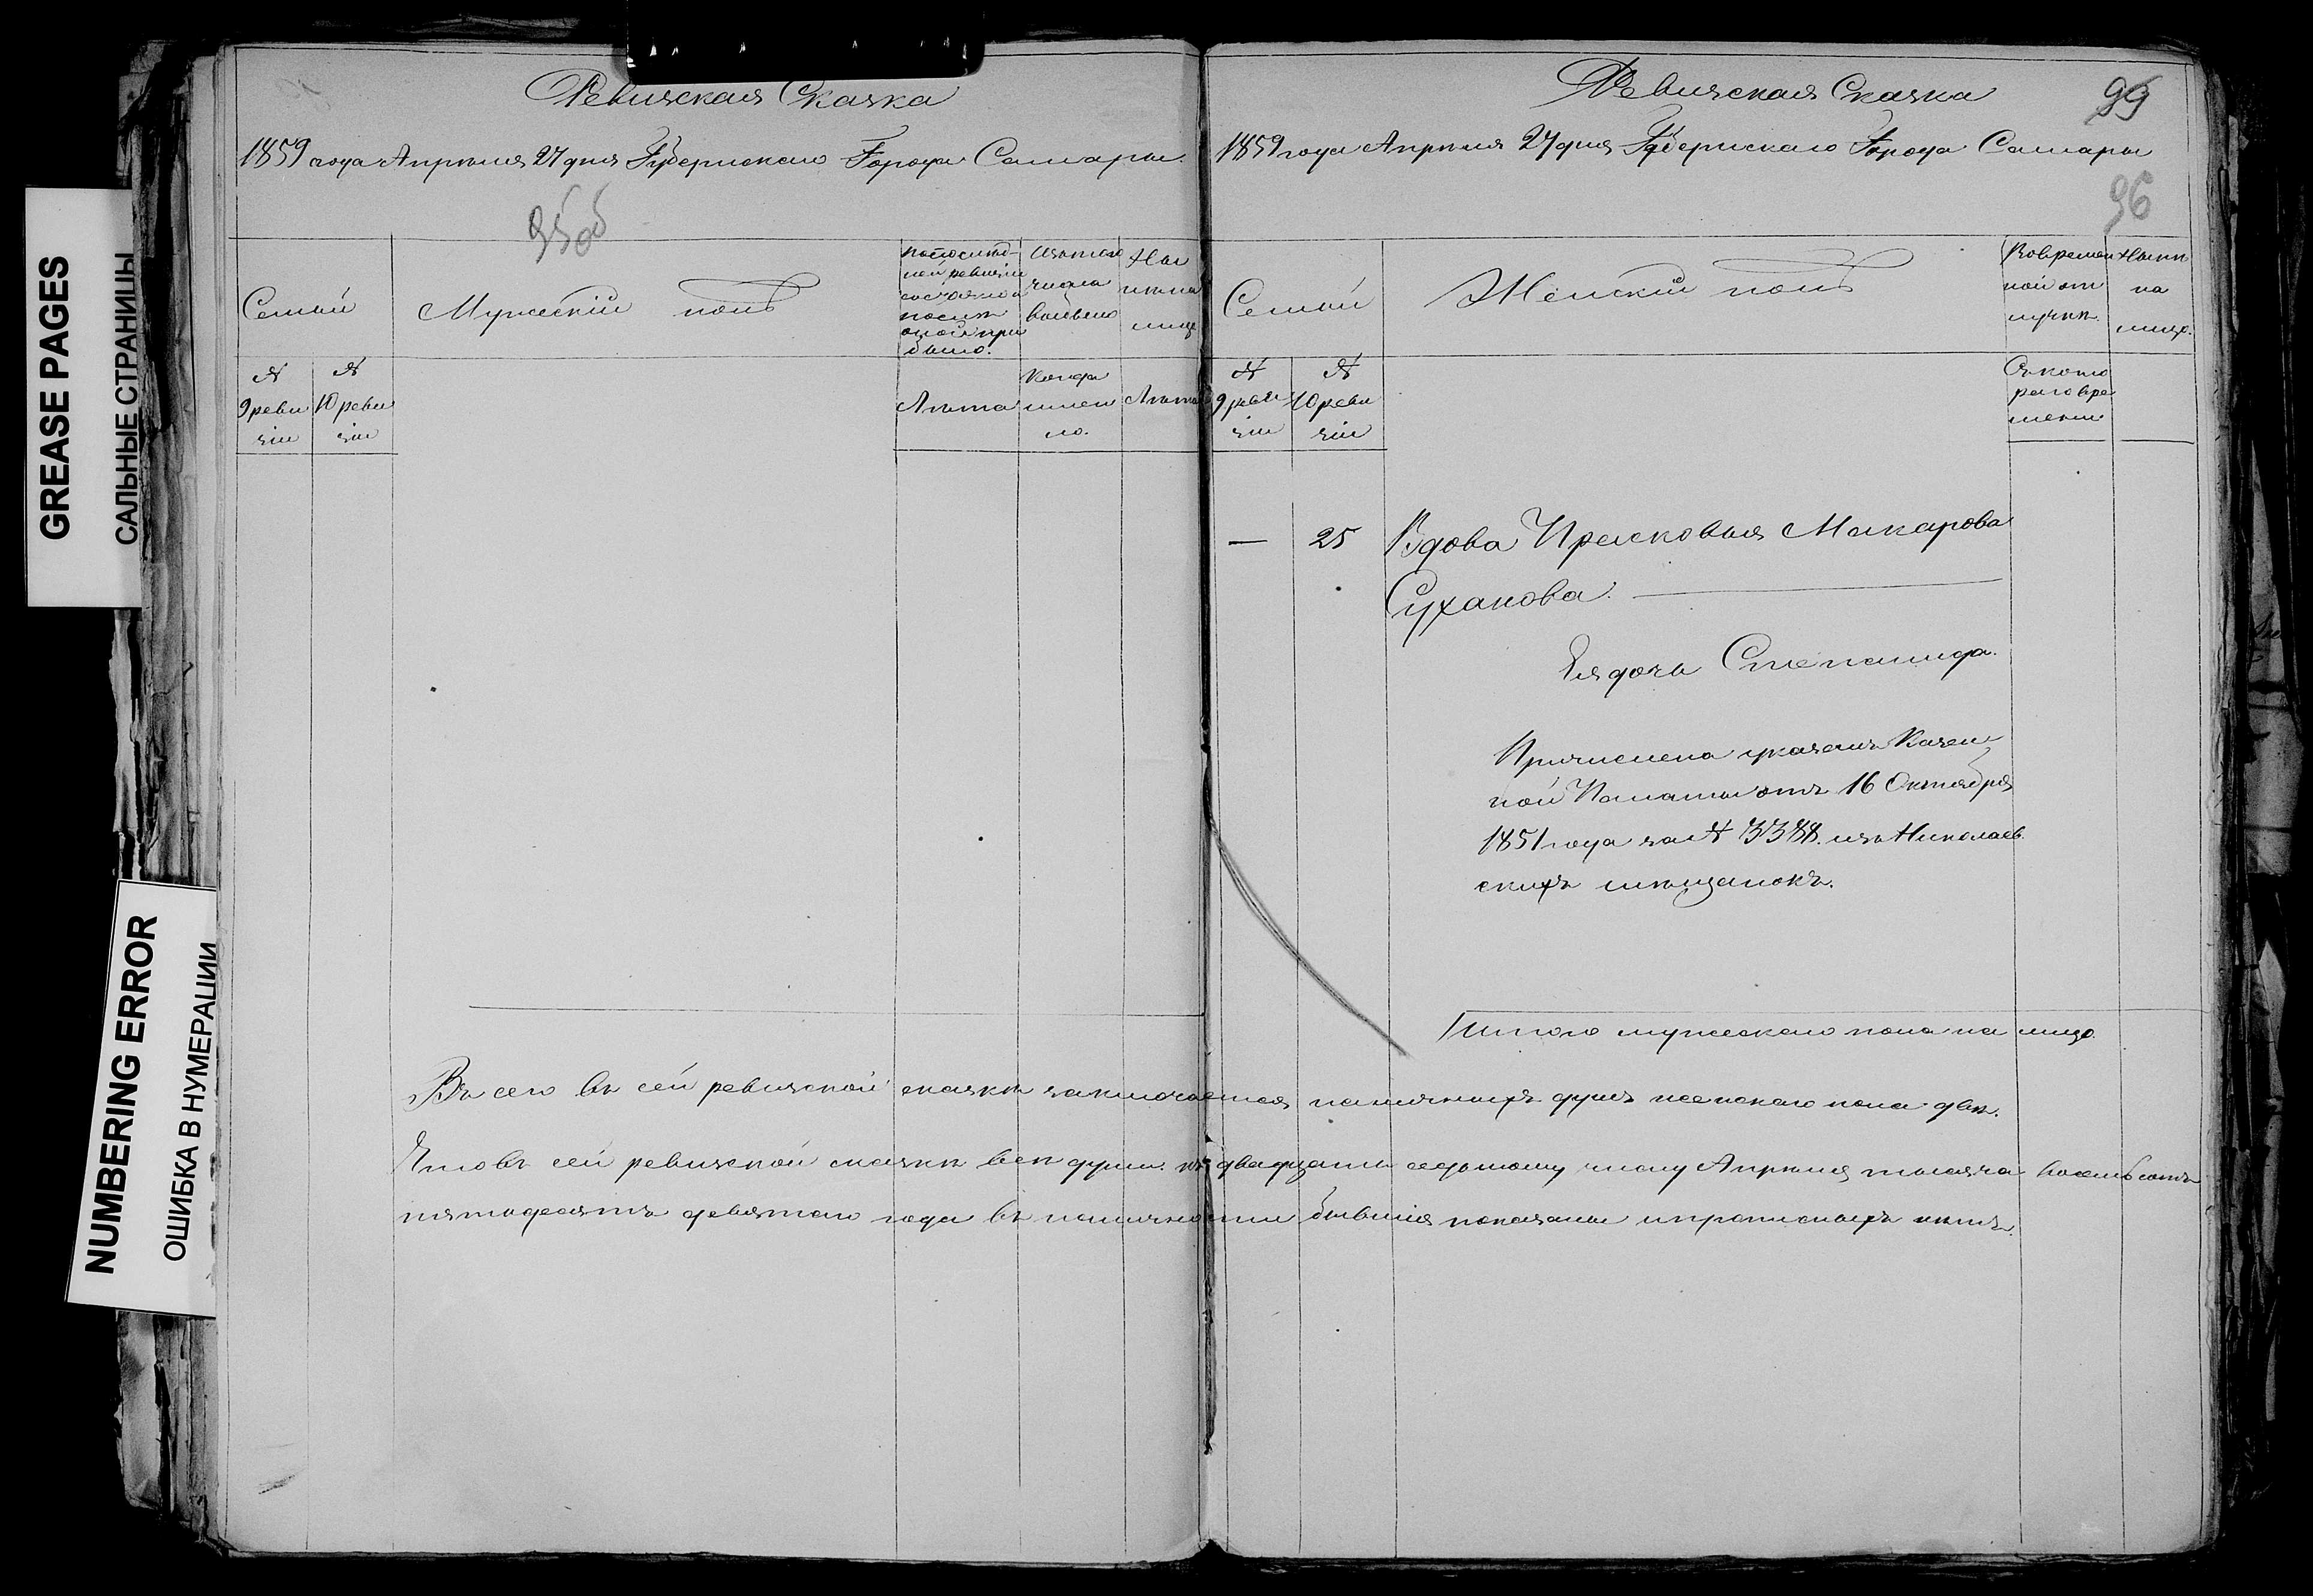 GREASE PAGES
САЛЬНЫЕ СТРАНИЦЫ
NUMBERING ERROR
ОШИБКА В НУМЕРАЦИИ
Ревизская Сказка
1859 года Апрѣля 27 дня Губернскаго Города Самары
95об
Семьи
Мужескій полъ
По послѣд-
ней ревизіи
состояло и
послѣ
оной при
было.
Изъ того
числа
выбыло
Ны
нѣ на
лице
№
9 реви
зіи
№
10 реви
зіи
Лѣта
Когда
имен
но.
Лѣта
Ревизская Сказка
99
1859 года Апрѣля 27 дня Губернскаго Города Самары
96
Семьи
Женскій полъ
Во времен
ной от
лучкѣ.
Нынѣ
на
лицо.
№
9 реви
зіи
№
10 реви
зіи
Съ кото
раго вре
мени
— 25 Вдова Прасковья Макарова
Суханова.
Ея дочь Степанида.
Причислена указомъ Казен
ной Палаты отъ 16 Октября
1851 года за № 3388. изъ Николаев
скихъ мѣщанокъ.
Итого мужескаго пола на лицо.
Всего въ сей ревизской сказкѣ заключается наличныхъ душъ женскаго пола двѣ.
Что въ сей ревизской сказкѣ всѣ души къ двадцать седьмому числу Апрѣля тысяча восемьсотъ
пятьдесятъ девятаго года въ наличности бывшія показаны и прописныхъ нѣтъ.